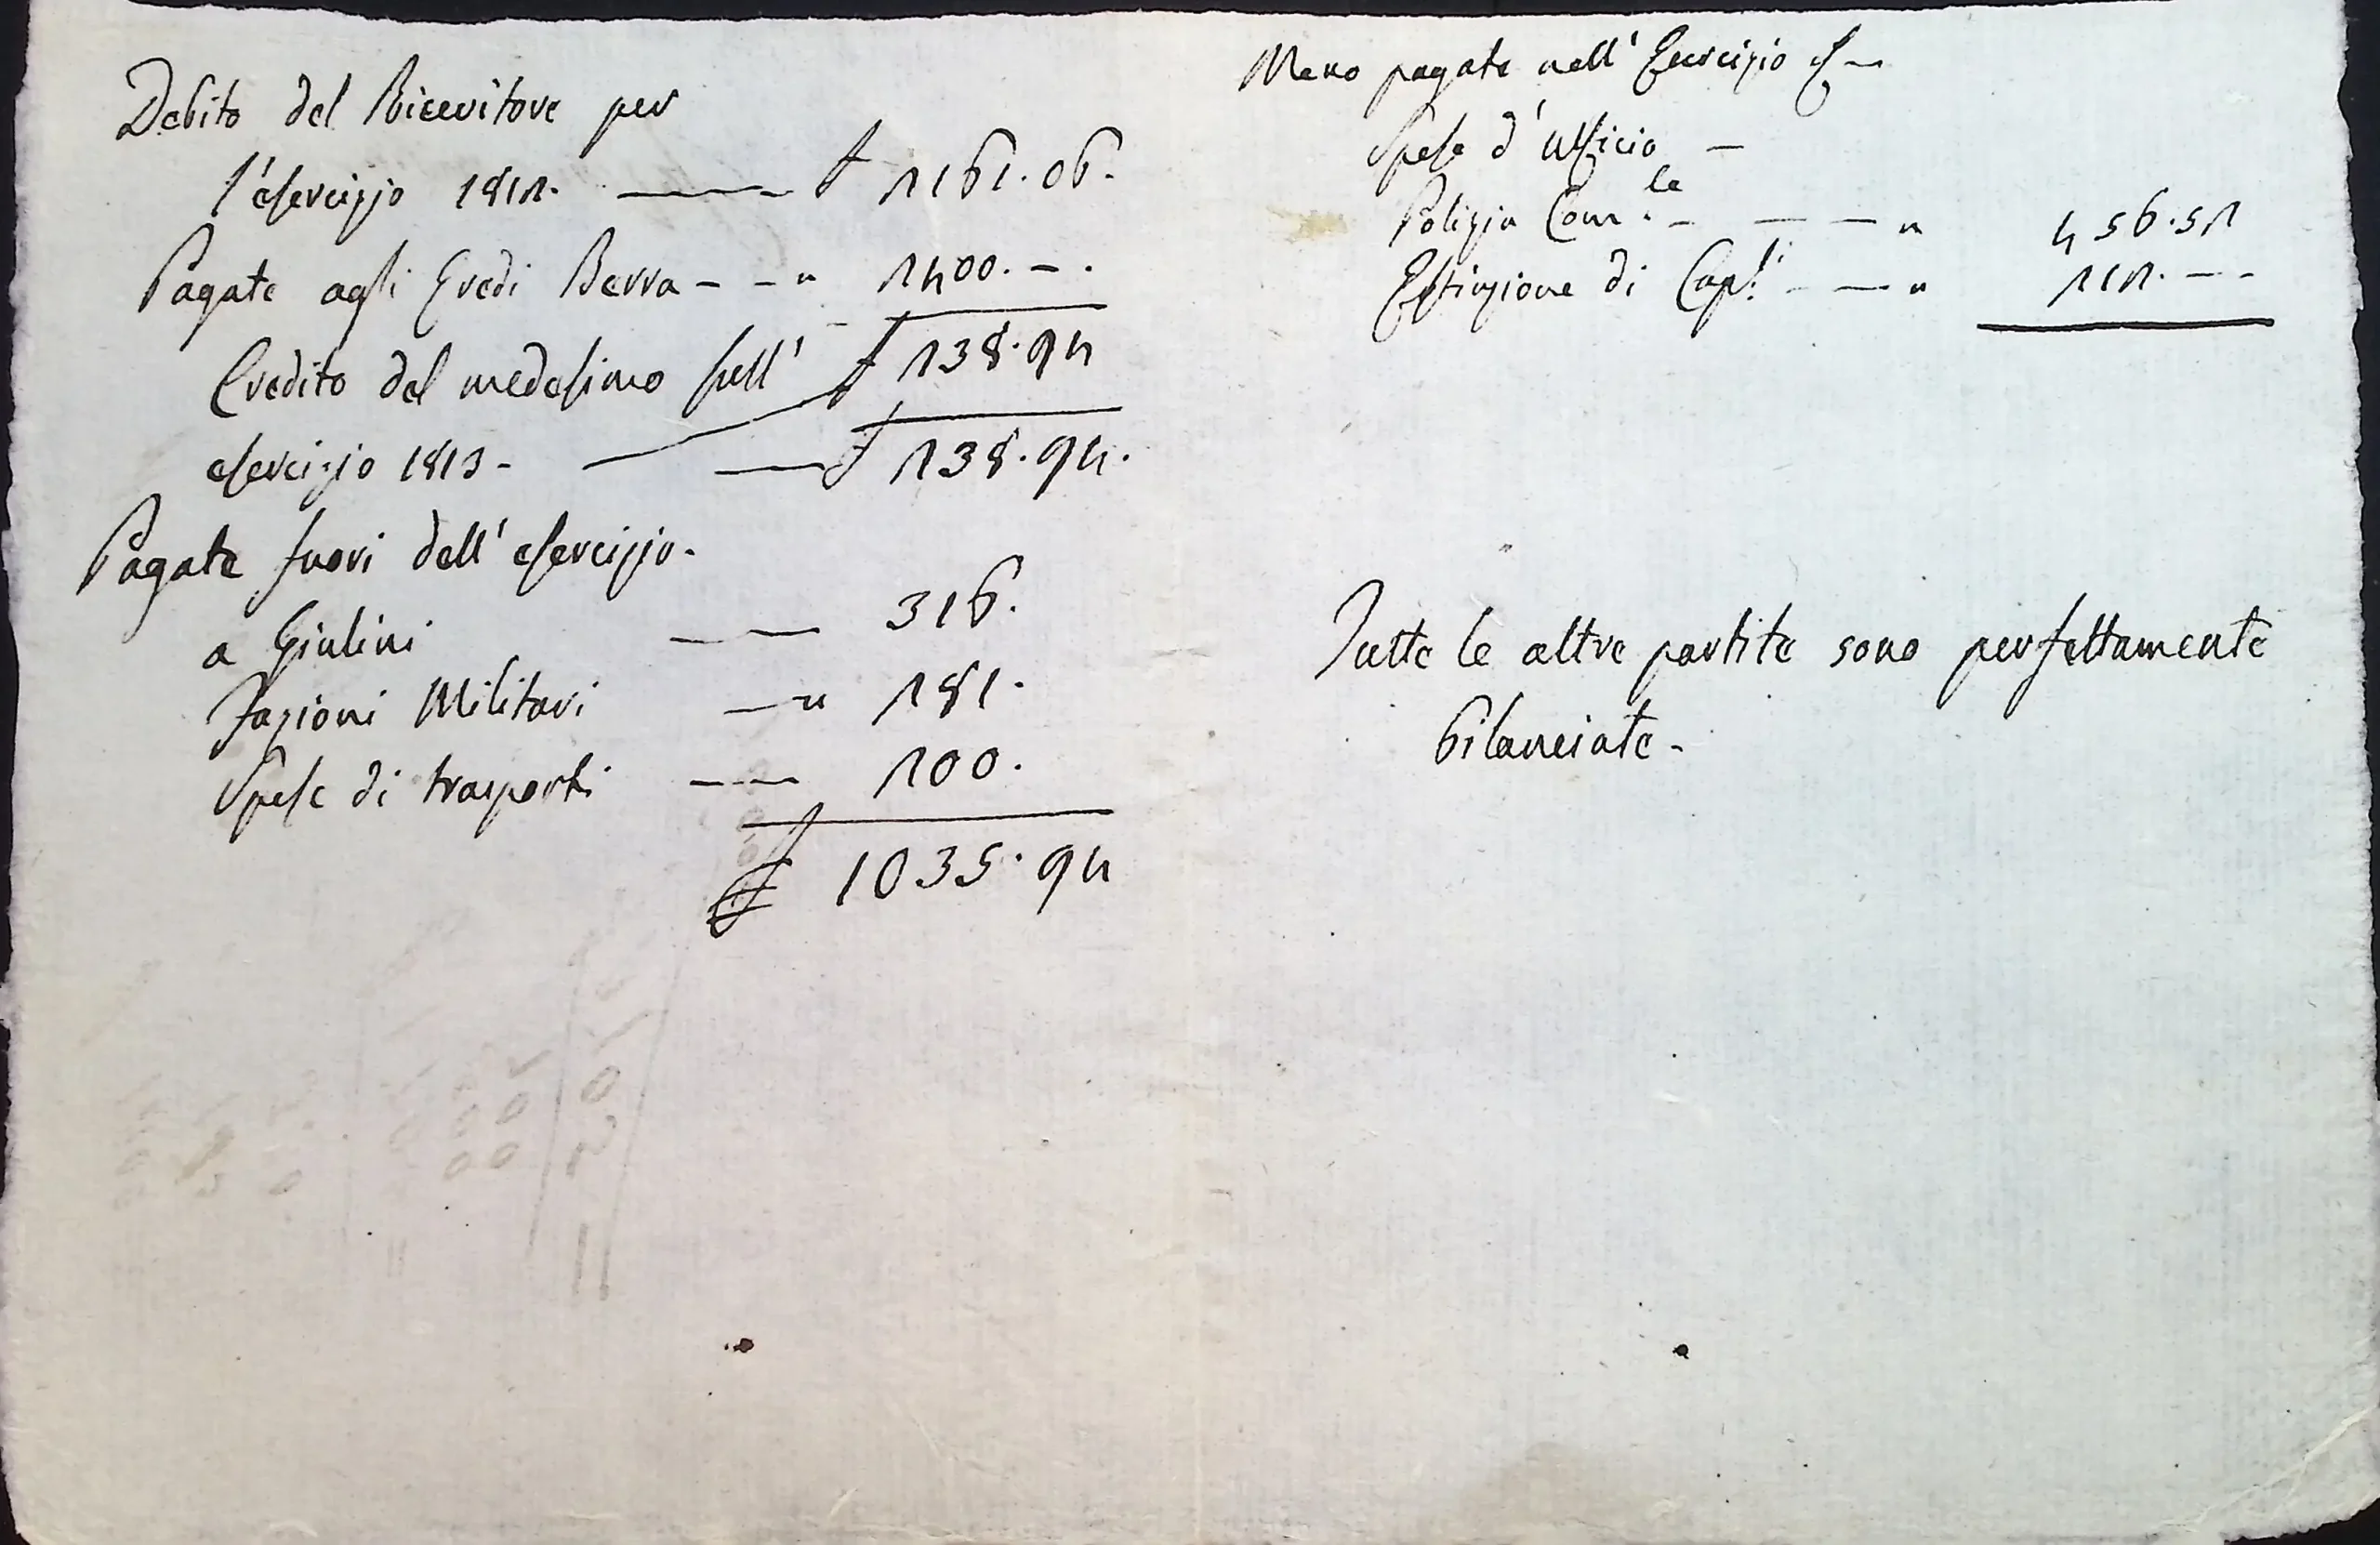 Debito del Ricevitore per
l'esercizio 1812. —— £ 2161.06.
Pagate agli Eredi Berra - - " 2400. - .
Credito del medesimo sull' £ 238.94
esercizio 1813 - — £ 238.94.
Pagate fuori dell' esercizio.
a Giulini —— 316.
Fazioni Militari — " 281.
Spese di trasporti —— 200.
£ 1035.94
Meno pagate nell' Esercizio
Spese d'Ufficio —
Polizia Com.le - — — " 456.52
Estinzione di Cap.li - — " 112. - -
Tutte le altre partite sono perfettamente
bilanciate -